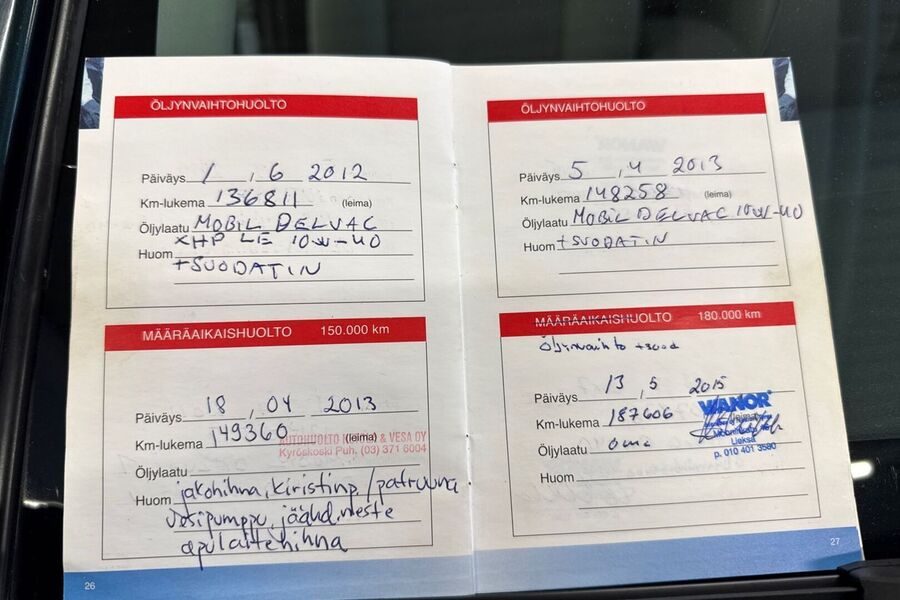 ÖLJYNVAIHTOHUOLTO
Päiväys 1 , 6 2012
Km-lukema 136811 (leima)
Öljylaatu MOBIL DELVAC
XHP LE 10W-40
Huom
+SUODATIN
MÄÄRÄAIKAISHUOLTO 150.000 km
Päiväys 18 , 04 2013
Km-lukema 149360 (leima)
AUTOHUOLTO & VESA OY
Kyröskoski Puh. (03) 371 6004
Öljylaatu
Huom jakohihna, kiristinp. / patruuna
vesipumppu, jäähd.neste
apulaitehihna
26
ÖLJYNVAIHTOHUOLTO
Päiväys 5 , 4 2013
Km-lukema 148258 (leima)
Öljylaatu MOBIL DELVAC 10W-40
Huom +SUODATIN
MÄÄRÄAIKAISHUOLTO 180.000 km
Öljynvaihto +suod
Päiväys 13 , 5 2015
Km-lukema 187606 (leima)
WANOR
Lieksa
p. 010 401 3580
Öljylaatu oma
Huom
27